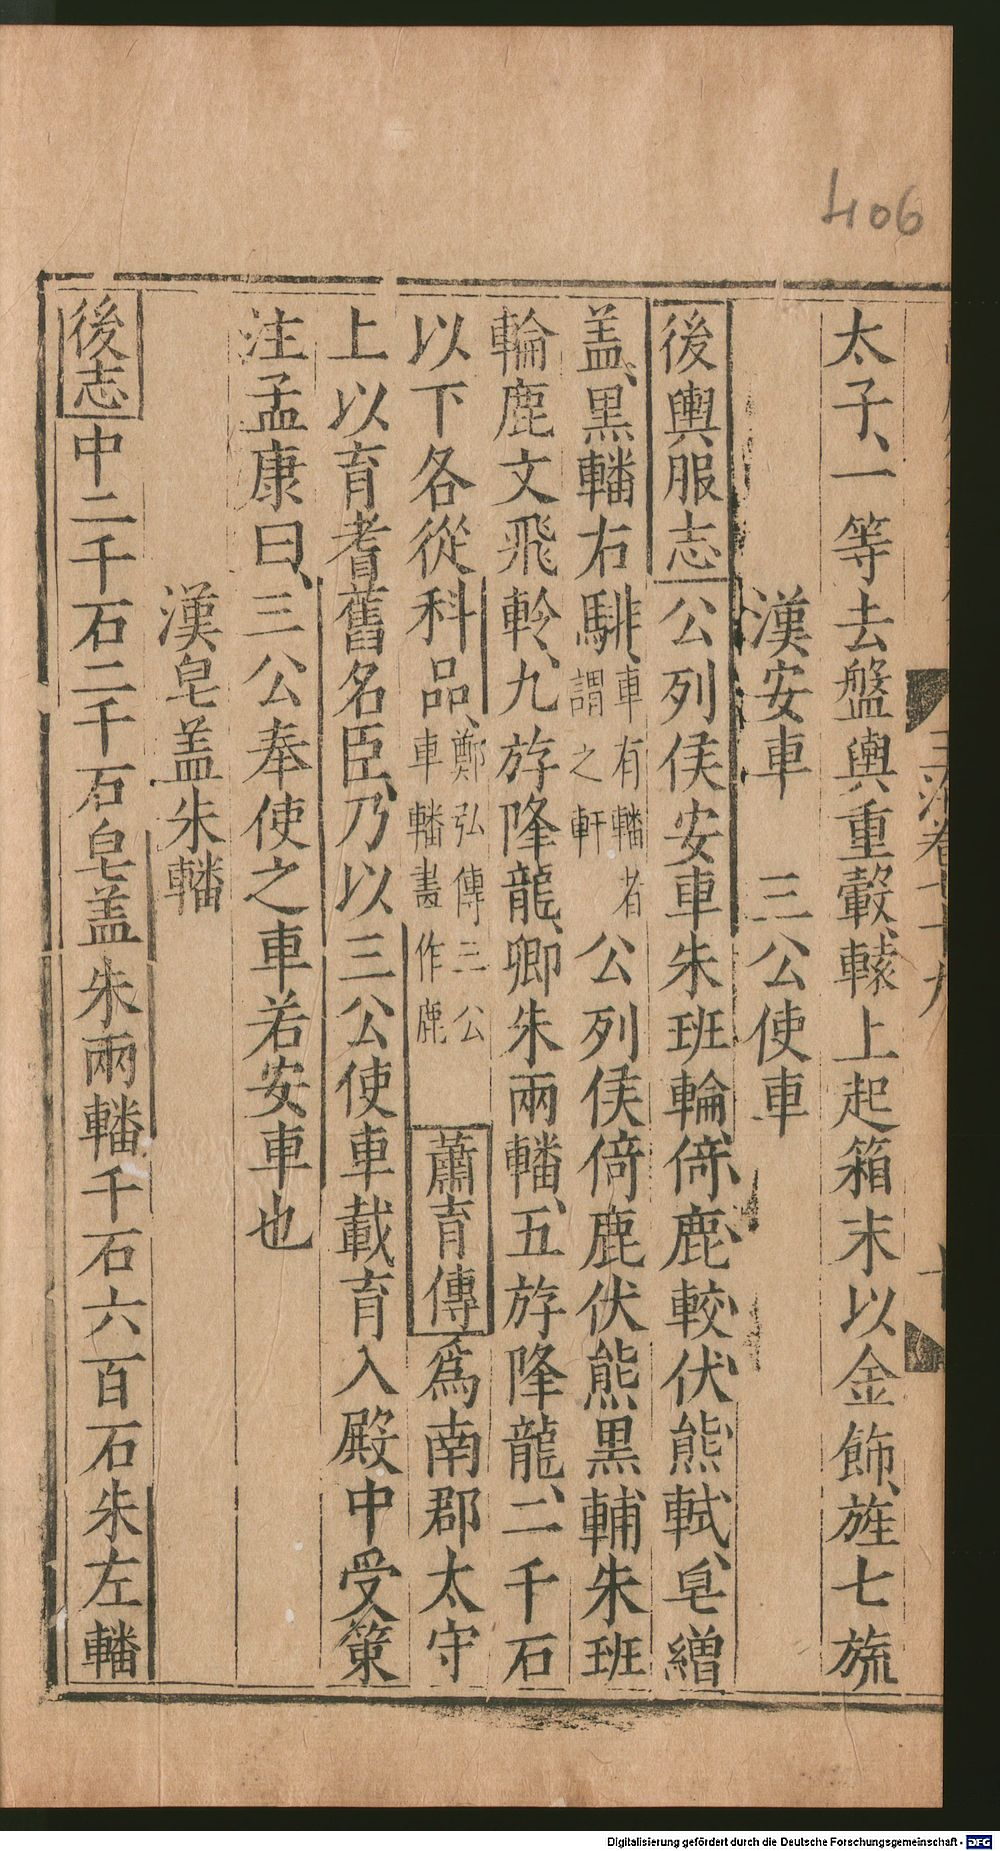 406
太子、一等去盤輿重轂、轅上起箱末以金飾、旌七旒
漢安車　三公使車
後輿服志公列侯安車朱班輪、倚、鹿、較、伏、熊、軾、皂繒
盖、黑轓右騑、車有轓者謂之軒公列侯倚鹿伏熊黑、輔朱班
輪鹿文飛軨、九斿降龍、卿朱兩轓、五斿降龍、二千石
以下各從科品、鄭弘傳三公車轓畫作鹿蕭育傳爲南郡太守
上以育耆舊名臣、乃以三公使車載育入殿中受策
注孟康曰、三公奉使之車若安車也
漢皂盖朱轓
後志中二千石二千石皂盖朱兩轓千石六百石朱左轓
Digitalisierung gefördert durch die Deutsche Forschungsgemeinschaft - DFG